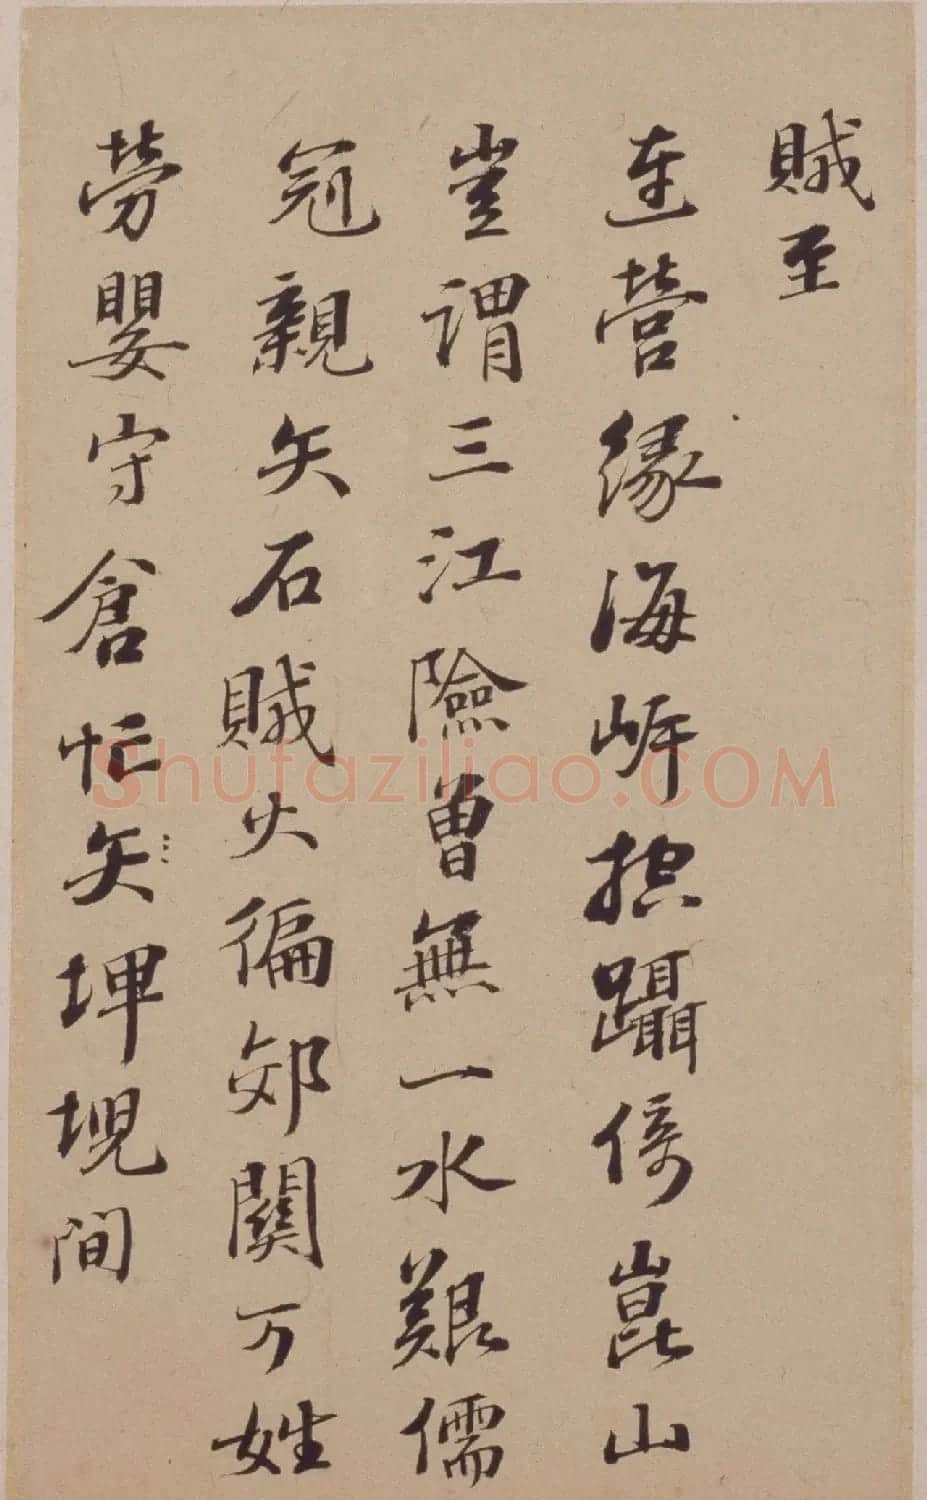 賊至
連營緣海岸控躡倚崑山
豈謂三江險曾無一水艱儒
冠親矢石賊火徧郊關万姓
勞嬰守倉忙矢埤堄間
Shufaziliao.COM